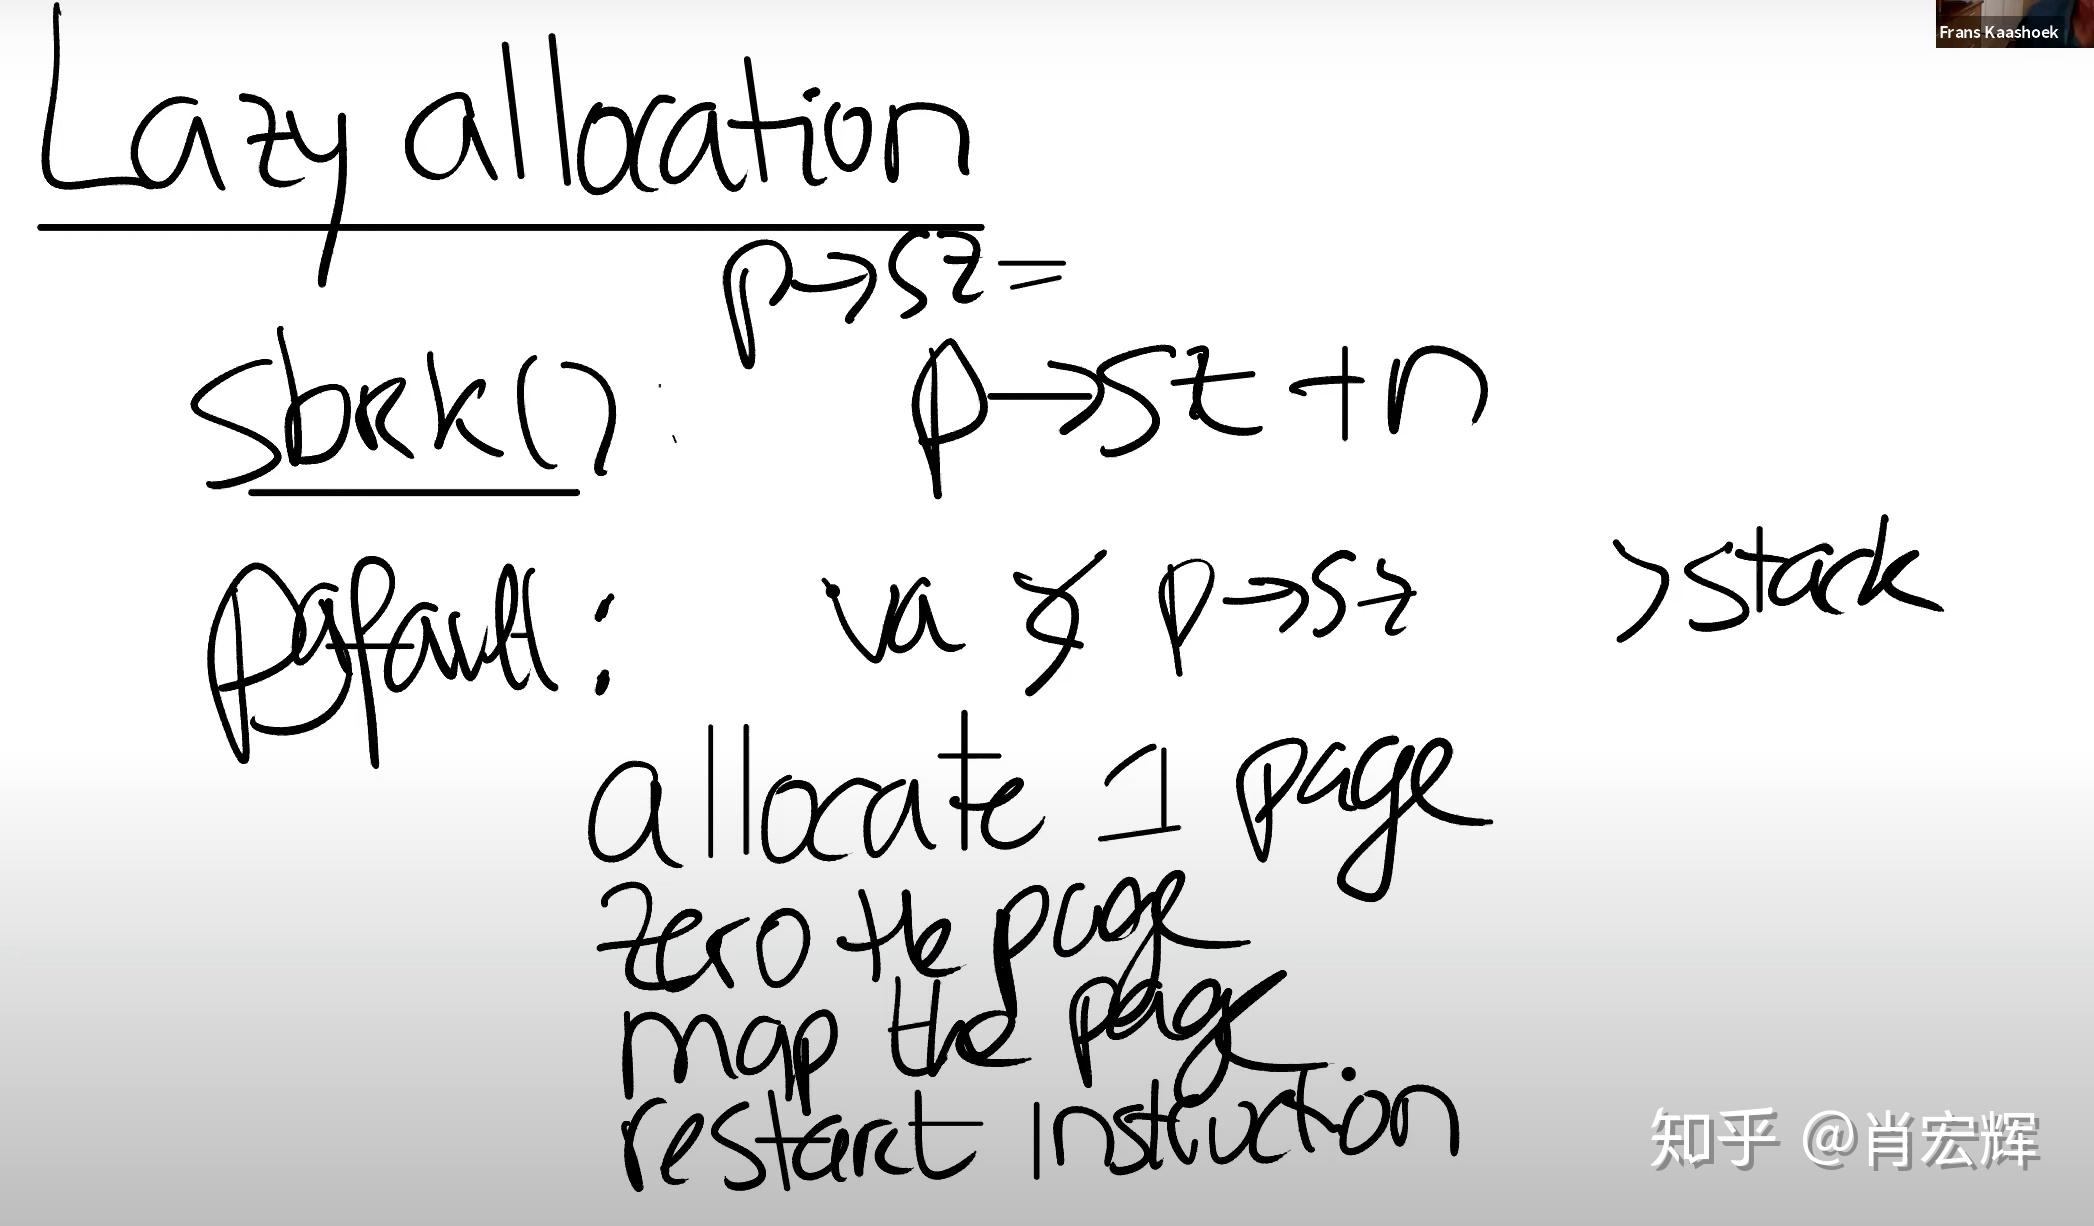 Frans Kaashoek
Lazy allocation
p→sz=
sbrk() p→sz+n
pgfault: va < p→sz >stack
allocate 1 page
zero the page
map the page
restart instruction
知乎 @肖宏辉